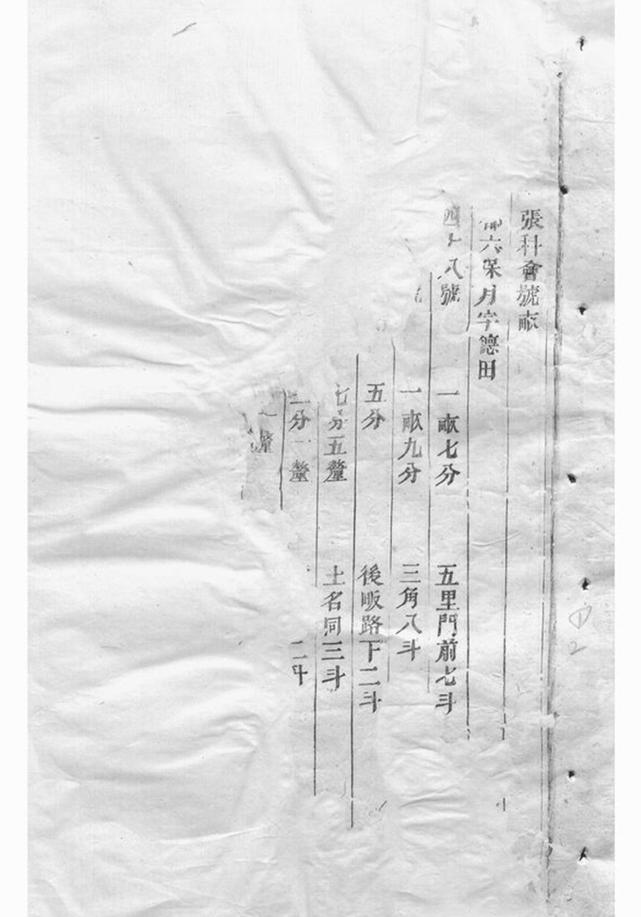 張科會號畝
六保月字德田
四 八號 一畝七分 五里門前七斗
一畝九分 三角八斗
五分 後畈路下二斗
七分五釐 土名同三斗
二分一釐 二斗
一 釐